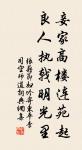 妾家高樓連苑起
良人執戟明光里
張籍節婦吟寄東平李
司空師道詩典網書